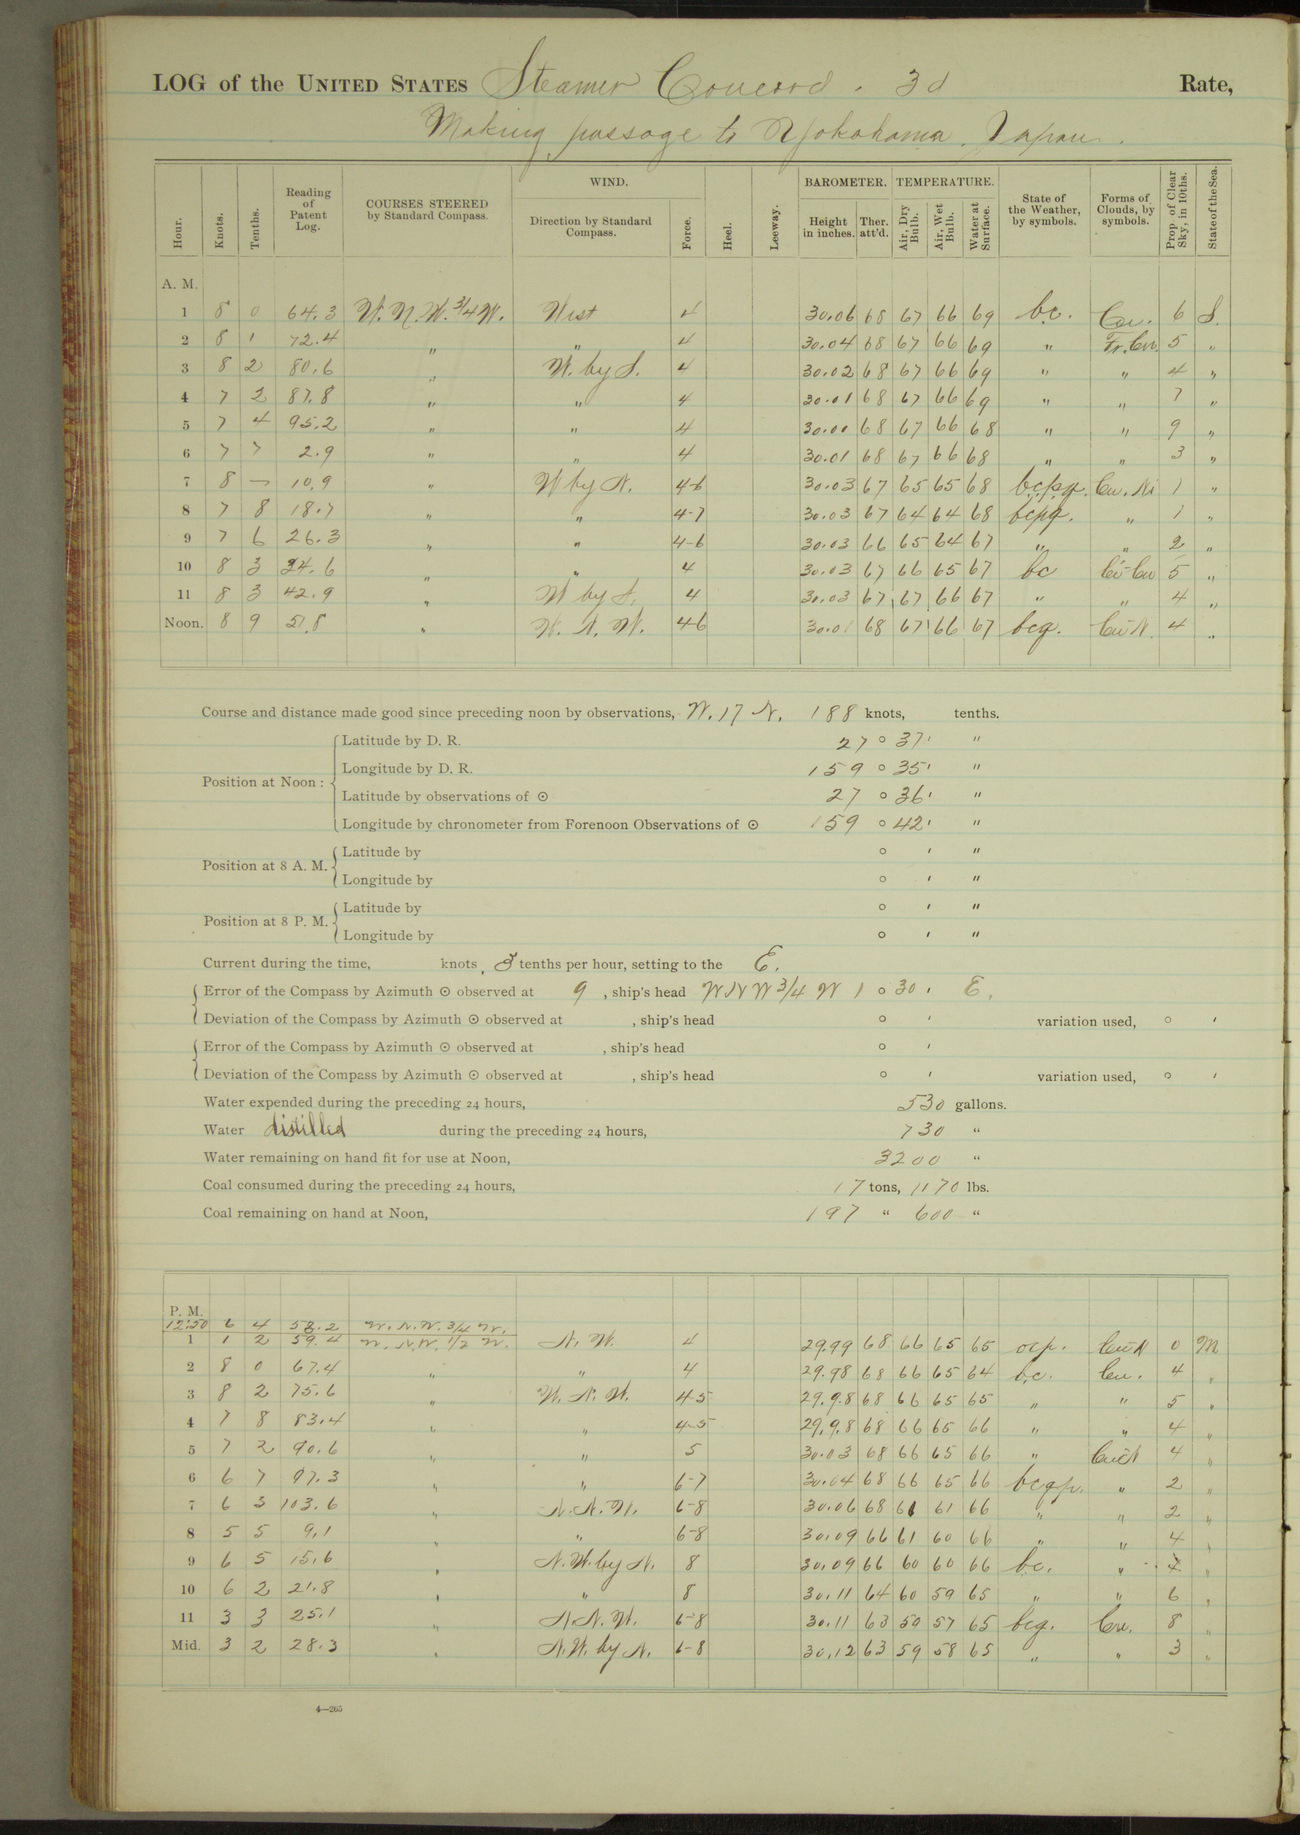 LOG of the UNITED STATES Steamer Concord. 3d Rate,
Making passage to Yokohama, Japan.
Hour. Knots. Tenths. Reading of Patent Log. COURSES STEERED by Standard Compass. WIND. Direction by Standard Compass. Force. Heel. Leeway. BAROMETER. Height in inches. Ther. att'd. TEMPERATURE. Air, Dry Bulb. Air, Wet Bulb. Water at Surface. State of the Weather, by symbols. Forms of Clouds, by symbols. Prop. of Clear Sky, in 10ths. State of the Sea.
A. M.
1 8 0 64.3 W. N. W. 3/4 W. West 4 30.06 68 67 66 69 bc. Cu. 6 S.
2 8 1 72.4 " " 4 30.04 68 67 66 69 " Fr. Cu. 5 "
3 8 2 80.6 " W. by S. 4 30.02 68 67 66 69 " " 4 "
4 7 2 87.8 " " 4 30.01 68 67 66 69 " " 7 "
5 7 4 95.2 " " 4 30.00 68 67 66 68 " " 9 "
6 7 7 2.9 " " 4 30.01 68 67 66 68 " " 3 "
7 8 — 10.9 " W by N. 4-6 30.03 67 65 65 68 bcpq. Cu. Ni 1 "
8 7 8 18.7 " " 4-7 30.03 67 64 64 68 bcpq. " 1 "
9 7 6 26.3 " " 4-6 30.03 66 65 64 67 " " 2 "
10 8 3 34.6 " " 4 30.03 67 66 65 67 bc Ci-Cu 5 "
11 8 3 42.9 " W by S. 4 30.03 67 67 66 67 " " 4 "
Noon. 8 9 51.8 " W. N. W. 4-6 30.01 68 67 66 67 bcq. Cu N. 4 "
Course and distance made good since preceding noon by observations, W. 17 N. 188 knots, tenths.
Position at Noon: Latitude by D. R. 27 ° 37 ' "
Longitude by D. R. 159 ° 35 ' "
Latitude by observations of ⊙ 27 ° 36 ' "
Longitude by chronometer from Forenoon Observations of ⊙ 159 ° 42 ' "
Position at 8 A. M. Latitude by ° ' "
Longitude by ° ' "
Position at 8 P. M. Latitude by ° ' "
Longitude by ° ' "
Current during the time, knots, 5 tenths per hour, setting to the E.
Error of the Compass by Azimuth ⊙ observed at 9, ship's head WNW 3/4 W 1 ° 30 ' E.
Deviation of the Compass by Azimuth ⊙ observed at , ship's head ° ' variation used, ° '
Error of the Compass by Azimuth ⊙ observed at , ship's head ° '
Deviation of the Compass by Azimuth ⊙ observed at , ship's head ° ' variation used, ° '
Water expended during the preceding 24 hours, 530 gallons.
Water distilled during the preceding 24 hours, 730 "
Water remaining on hand fit for use at Noon, 3200 "
Coal consumed during the preceding 24 hours, 17 tons, 1170 lbs.
Coal remaining on hand at Noon, 197 " 600 "
P. M.
12:50 6 4 58.2 W. N. W. 3/4 W.
1 1 2 59.4 W. N. W. 1/2 W. N. W. 4 29.99 68 66 65 65 ocp. Cu N 0 M
2 8 0 67.4 " " 4 29.98 68 66 65 64 bc. Cu. 4 "
3 8 2 75.6 " W. N. W. 4-5 29.98 68 66 65 65 " " 5 "
4 7 8 83.4 " " 4-5 29.98 68 66 65 66 " " 4 "
5 7 2 90.6 " " 5 30.03 68 66 65 66 " Cu N 4 "
6 6 7 97.3 " " 6-7 30.04 68 66 65 66 bcqp. " 2 "
7 6 3 103.6 " N. N. W. 6-8 30.06 68 61 61 66 " " 2 "
8 5 5 9.1 " " 6-8 30.09 66 61 60 66 " " 4 "
9 6 5 15.6 " N. W. by N. 8 30.09 66 60 60 66 bc. " "
10 6 2 21.8 " " 8 30.11 64 60 59 65 " " 6 "
11 3 3 25.1 " N. N. W. 6-8 30.11 63 59 57 65 bcq. Cu. 8 "
Mid. 3 2 28.3 " N. W. by N. 6-8 30.12 63 59 58 65 " " 3 "
4—265